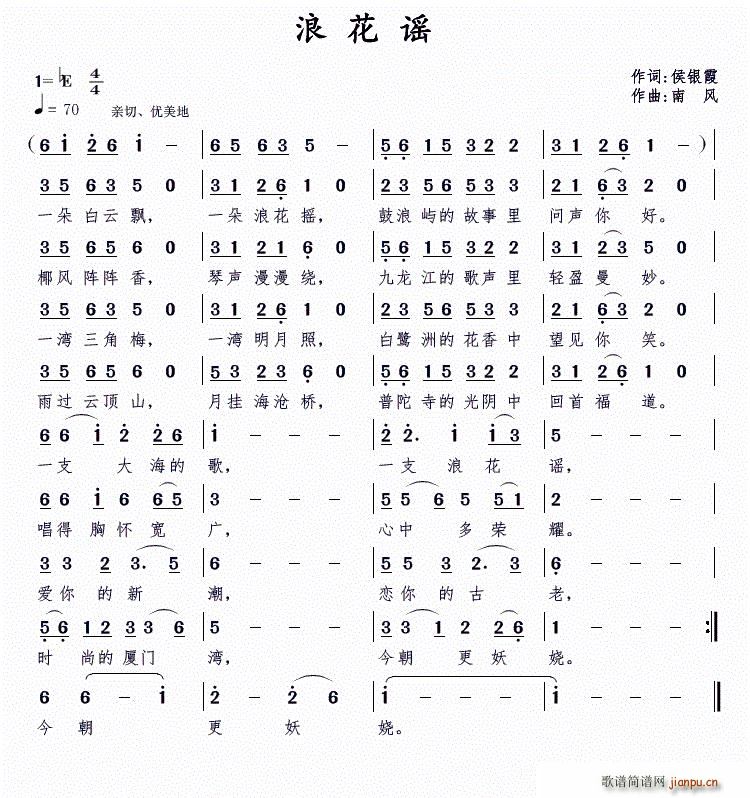 浪花谣
1=♭E 4/4
作词:侯银霞
♩= 70 亲切、优美地
作曲:南 风
( 6 i 2 6 i - | 6 5 6 3 5 - | 5 6 1 5 3 2 2 | 3 1 2 6 1 - )
3 5 6 3 5 0 | 3 1 2 6 1 0 | 2 3 5 6 5 3 3 | 2 1 6 3 2 0
一朵 白云飘, 一朵 浪花摇, 鼓浪 屿的 故事里 问声你 好。
3 5 6 5 6 0 | 3 1 2 1 6 0 | 5 6 1 5 3 2 2 | 3 1 2 3 5 0
椰风 阵阵 香, 琴声 漫漫 绕, 九龙 江的 歌声里 轻盈曼 妙。
3 5 6 3 5 0 | 3 1 2 6 1 0 | 2 3 5 6 5 3 3 | 2 1 6 3 2 0
一湾 三角 梅, 一湾 明月 照, 白鹭 洲的 花香中 望见你 笑。
3 5 6 5 6 0 | 5 3 2 3 6 0 | 5 6 1 5 3 2 2 | 3 1 2 6 1 0
雨过 云顶 山, 月挂 海沧 桥, 普陀 寺的 光阴中 回首福 道。
6 6 i 2 2 6 | i - - - | 2 2. i i 3 | 5 - - -
一支 大 海的 歌, 一支 浪 花 谣,
6 6 i 6 6 5 | 3 - - - | 5 5 6 5 5 1 | 2 - - -
唱得 胸 怀 宽 广, 心中 多 荣 耀。
3 3 2 3. 5 | 6 - - - | 5 5 3 2. 3 | 6 - - -
爱你 的 新 潮, 恋你 的 古 老,
5 6 1 2 3 3 6 | 5 - - - | 3 3 1 2 2 6 | 1 - - - :||
时 尚的 厦门 湾, 今朝 更 妖 娆。
6 6 - i | 2 - 2 6 | i - - - | i - - - ||
今 朝 更 妖 娆。
歌谱简谱网
jianpu.cn